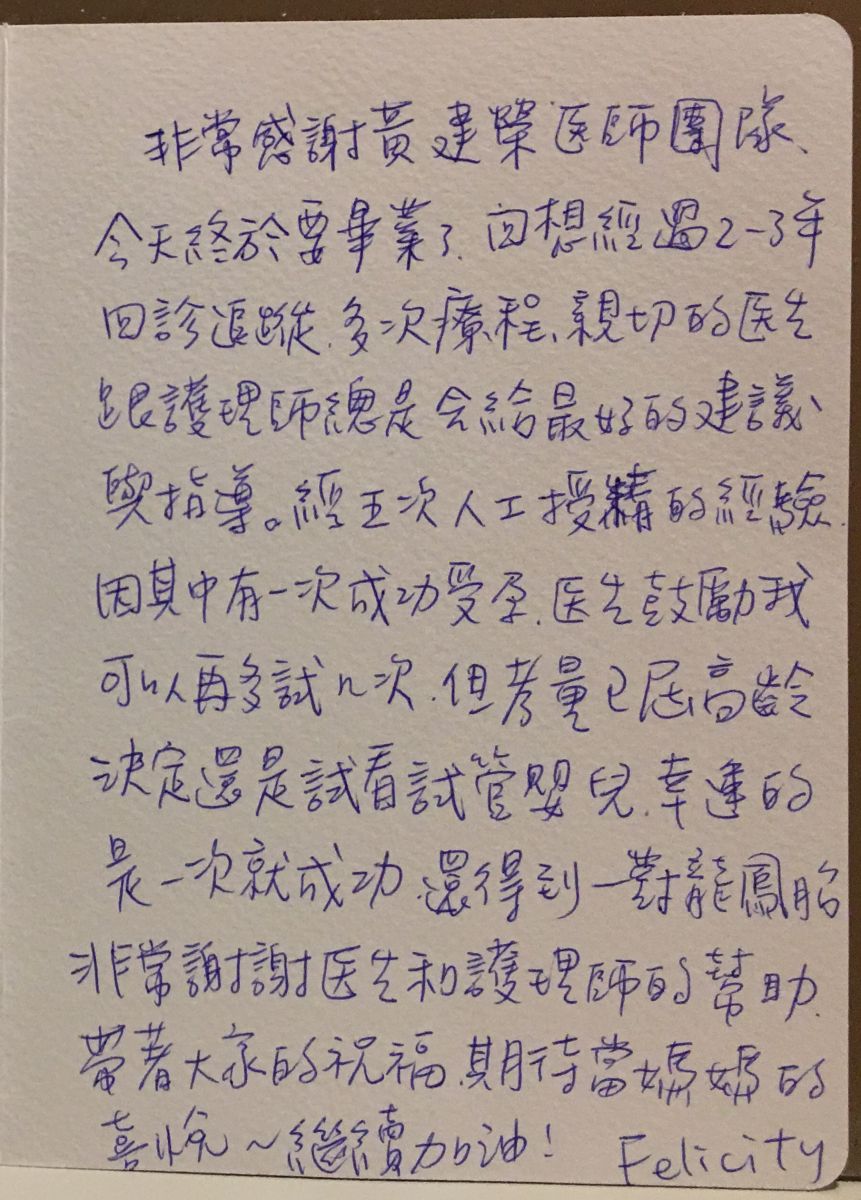 非常感謝黃建榮医師團隊、
今天終於要畢業了.回想經過2-3年
回診追蹤.多次療程、親切的医生
跟護理師總是会給最好的建議
與指導。經五次人工授精的經驗.
因其中有一次成功受孕.医生鼓勵我
可以再多試几次.但考量已屆高齡
決定還是試看試管嬰兒.幸運的
是一次就成功.還得到一對龍鳳胎
非常謝謝医生和護理師的幫助.
帶著大家的祝福.期待當媽媽的
喜悅~繼續加油!
Felicity